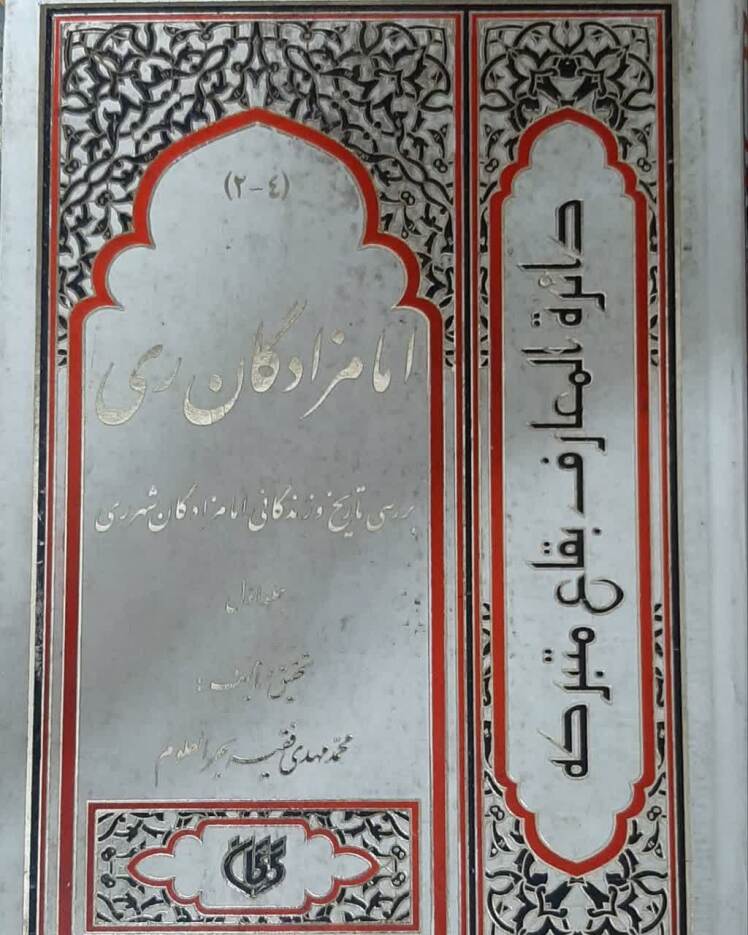 (٢-٤)
امامزادگان ری
بررسی تاریخ و زندگانی امامزادگان شهرری
جلد اول
تحقیق و تألیف :
محمّد مهدی فقیه بحرالعلوم
دائرة المعارف بقاع متبرکه